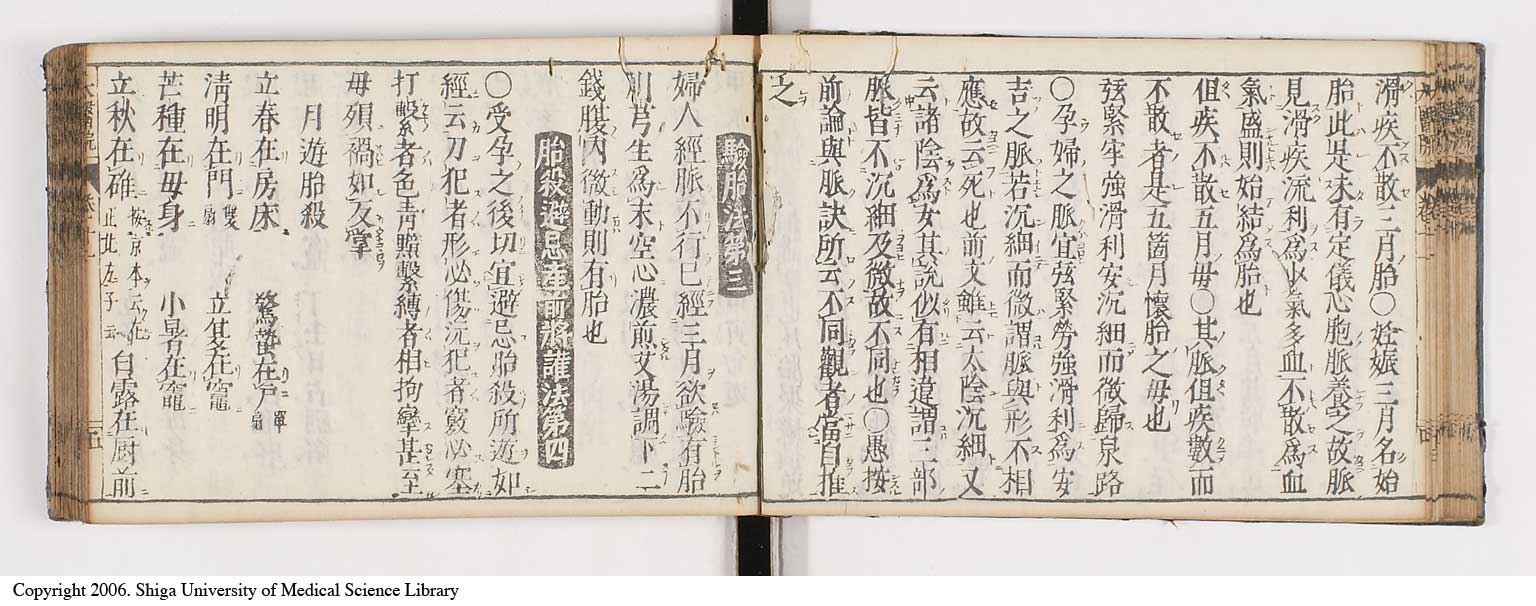 滑疾不散三月胎○妊娠三月名始
胎此是未有定儀心胞脈養之故脈
見滑疾流利為少氣多血不散為血
氣盛則始結為胎也
但疾不散五月毋○其脈但疾數而
不散者是五箇月懷胎之毋也
弦緊牢強滑利安沉細而微歸泉路
○孕婦之脈宜弦緊勞強滑利為安
吉之脈若沉細而微謂脈與形不相
應故云死也前文雖云太陰沉細又
云諸陰為女其說似有相違謂三部
脈皆不沉細及微故不同也○愚按
前論與脈訣所云不同觀者當自推
之
驗胎法第三
婦人經脈不行已經三月欲驗有胎
川芎生為末空心濃煎艾湯調下二
錢腹內微動則有胎也
胎殺避忌產前將護法第四
○受孕之後切宜避忌胎殺所遊如
經云刀犯者形必傷泥犯者竅必塞
打擊者色青黯繫縛者相拘攣甚至
毋殞禍如反掌
月遊胎殺
立春在房床　驚蟄在戶單扇
清明在門雙扇　立夏在竈
芒種在毋身　小暑在竈
立秋在碓　白露在厨前